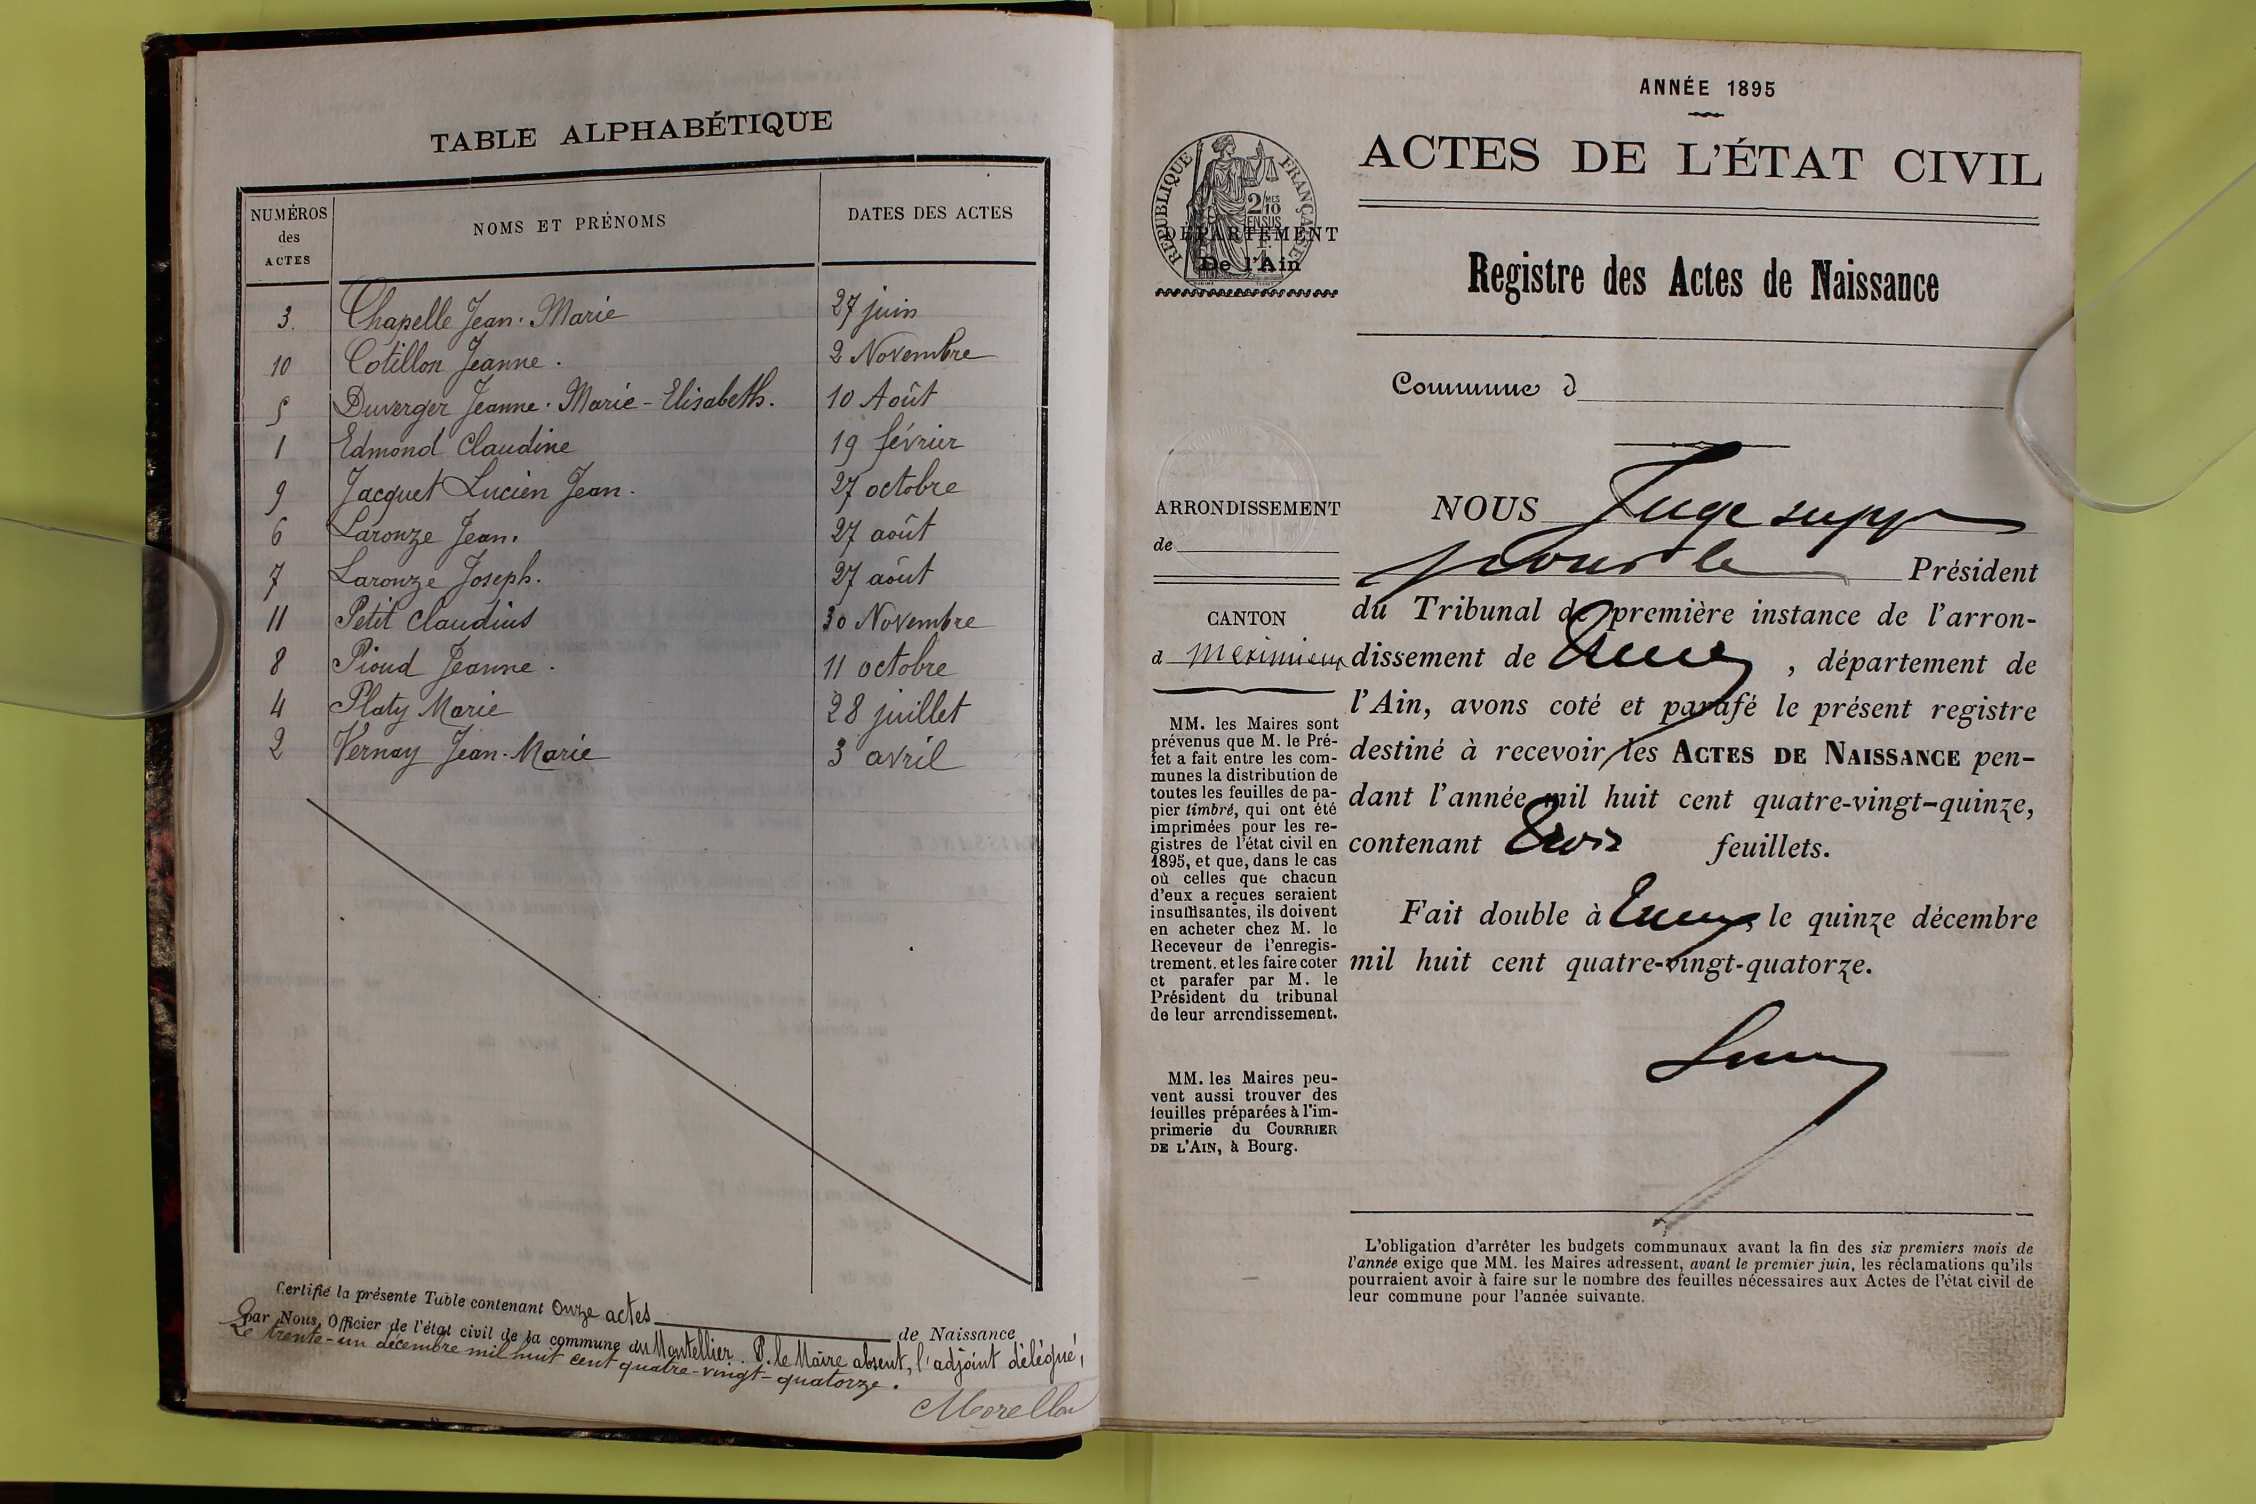 TABLE ALPHABÉTIQUE
NUMÉROS des ACTES NOMS ET PRÉNOMS DATES DES ACTES
3. Chapelle Jean-Marie 27 juin
10 Cotillon Jeanne. 2 Novembre
5 Duverger Jeanne-Marie-Elisabeth. 10 Août
1 Edmond Claudine 19 février
9 Jacquet Lucien Jean. 27 octobre
6 Laronze Jean. 27 août
7 Laronze Joseph. 27 août
11 Petit Claudius 30 Novembre
8 Pioud Jeanne. 11 octobre
4 Platy Marie 28 juillet
2 Vernay Jean-Marie 3 avril
Certifié la présente Table contenant Onze actes de Naissance
par Nous, Officier de l'état civil de la commune du Montellier. P. le Maire absent, l'adjoint délégué,
Le trente-un décembre mil huit cent quatre-vingt-quatorze.
Morellon
ANNÉE 1895
ACTES DE L'ÉTAT CIVIL
RÉPUBLIQUE FRANÇAISE
2/10 MES
EN SUS
DÉPARTEMENT
De l'Ain
Registre des Actes de Naissance
Commune d
ARRONDISSEMENT
de
CANTON
d Meximieux
MM. les Maires sont
prévenus que M. le Pré-
fet a fait entre les com-
munes la distribution de
toutes les feuilles de pa-
pier timbré, qui ont été
imprimées pour les re-
gistres de l'état civil en
1895, et que, dans le cas
où celles que chacun
d'eux a reçues seraient
insuffisantes, ils doivent
en acheter chez M. le
Receveur de l'enregis-
trement. et les faire coter
et parafer par M. le
Président du tribunal
de leur arrondissement.
MM. les Maires peu-
vent aussi trouver des
feuilles préparées à l'im-
primerie du COURRIER
DE L'AIN, à Bourg.
NOUS Juge supp
pour le Président
du Tribunal de première instance de l'arron-
dissement de , département de
l'Ain, avons coté et parafé le présent registre
destiné à recevoir les ACTES DE NAISSANCE pen-
dant l'année mil huit cent quatre-vingt-quinze,
contenant trois feuillets.
Fait double à le quinze décembre
mil huit cent quatre-vingt-quatorze.
L'obligation d'arrêter les budgets communaux avant la fin des six premiers mois de
l'année exige que MM. les Maires adressent, avant le premier juin, les réclamations qu'ils
pourraient avoir à faire sur le nombre des feuilles nécessaires aux Actes de l'état civil de
leur commune pour l'année suivante.